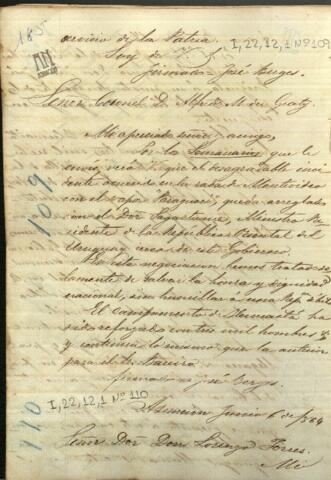 185
servicio de la Patria.
Soy de V.
I,22,12,1 Nº 109
firmado José Berges.
Señor Coronel D. Alfredo M. du Graty.
Mi apreciado Señor y amigo,
Por los Semanarios que le
envio, verá V. que el desagradable inci
dente ocurrido en la rada de Montevideo
con el vapor Paraguari, queda arreglado
con el Dor Sagastume, Ministro Re
sidente de la República Oriental del
Uruguay cerca de este Gobierno.
En esta negociacion hemos tratado so
lamente de salvar la honra y dignidad
nacional, sin humillar a una Rep. debil
El campamento de Humaitá ha
sido reforzado con tres mil hombres
y continúa lo mismo que la anterior
para el S. Barreiro.
firmado José Berges.
109
I,22,12,1 Nº 110
110
Asuncion Junio 6 de 1864
Señor Dor Don Lorenzo Torres.
Mi